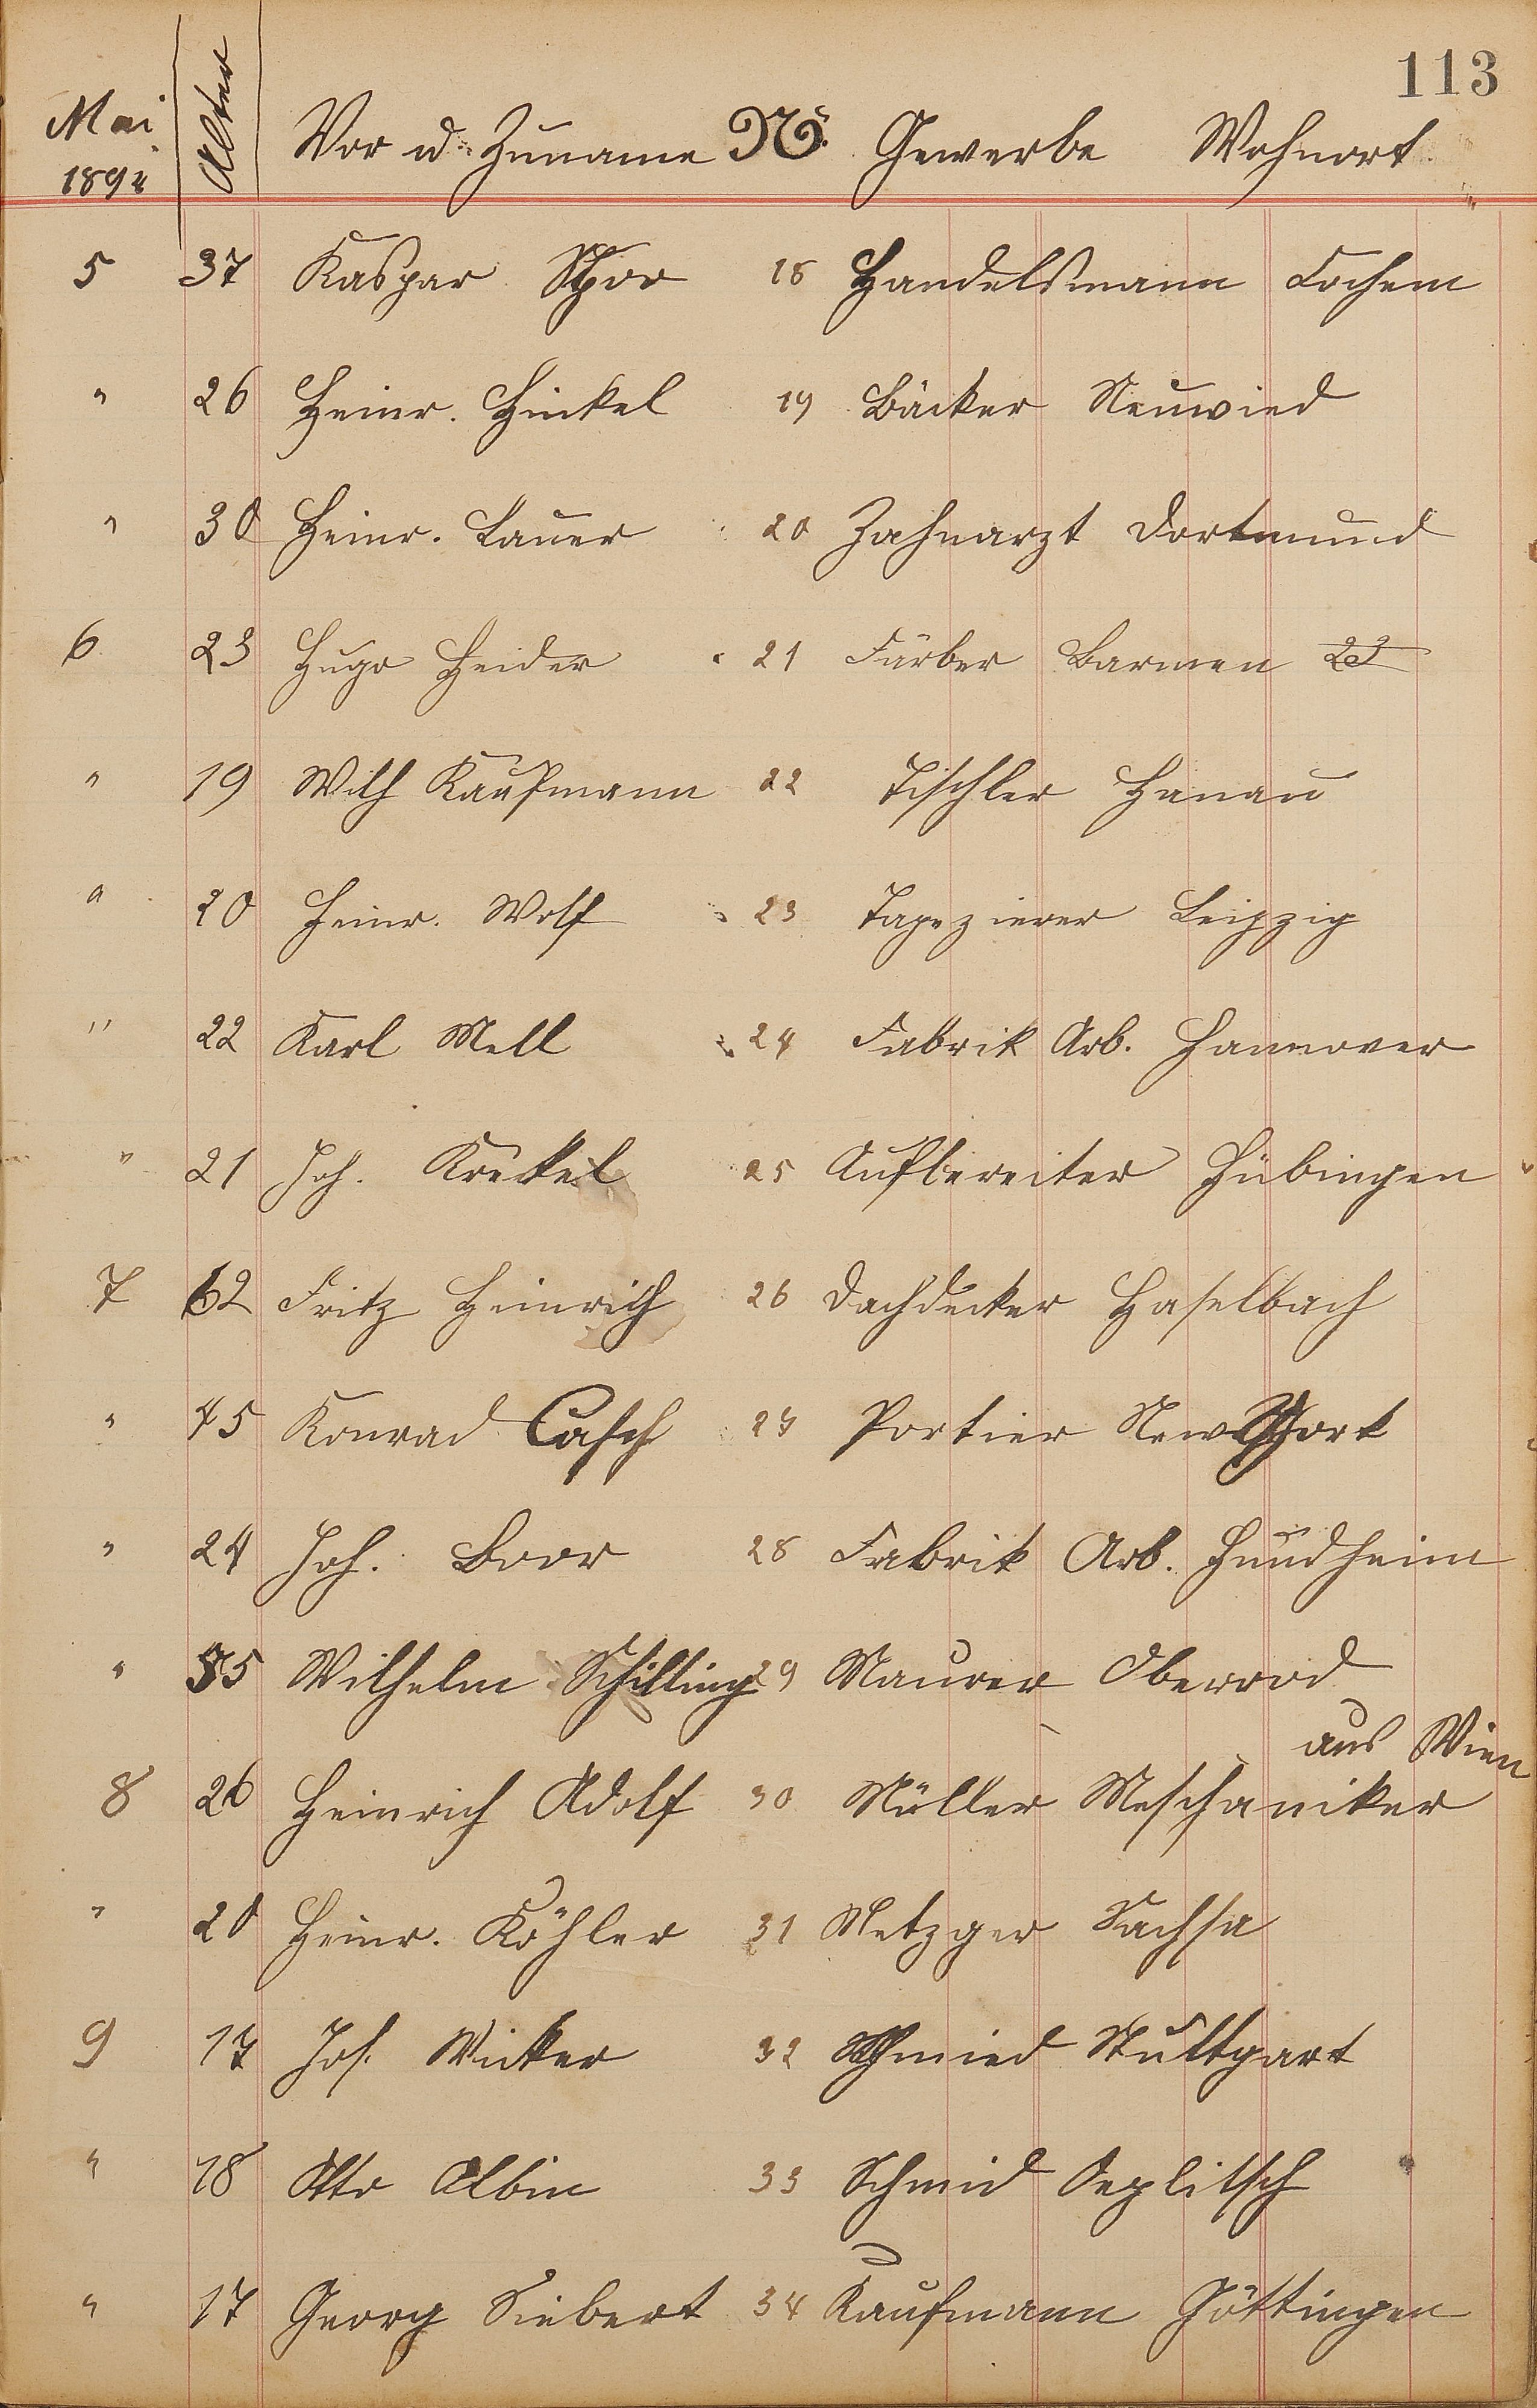 113
Mai 189 Alter Vor u. Zuname No. Gewerbe Wohnort
5 37 Kaspar Spor 18 Handelsmann Cochem
" 26 Heinr. Hinkel 19 Bäcker Neuwied
" 30 Heinr. Lauer 20 Zahnarzt Dortmund
6 23 Hugo Heider 21 Färber Barmen 23
" 19 Wilh Kaufmann 22 Tischler Hanau
" 20 Heinr. Wolf 23 Tapezierer Leipzig
" 22 Karl Mell 24 Fabrik Arb. Hannover
" 21 Joh. Krekel 25 Aufbereiter Hübingen
7 62 Fritz Heinrich 26 Dachdecker Haselbach
" 45 Konrad Casch 27 Portier New York
" 24 Joh. Boor 28 Fabrik Arb. Hundheim
" 35 Wilhelm Schilling 29 Maurer Oberrod
aus Wien
8 26 Heinrich Adolf 30 Müller Meschaniker
" 20 Heinr. Köhler 31 Metzger Sachsa
9 17 Jos. Wicker 32 Schmied Stuttgart
" 18 Otto Albin 33 Schmid
" 17 Georg Siebert 34 Kaufmann Göttingen